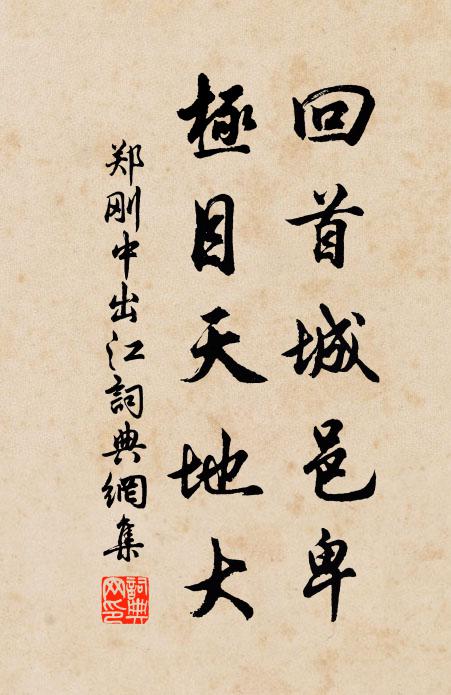 回首城邑卑
極目天地大
郑刚中出江詞典網集
詞典網印